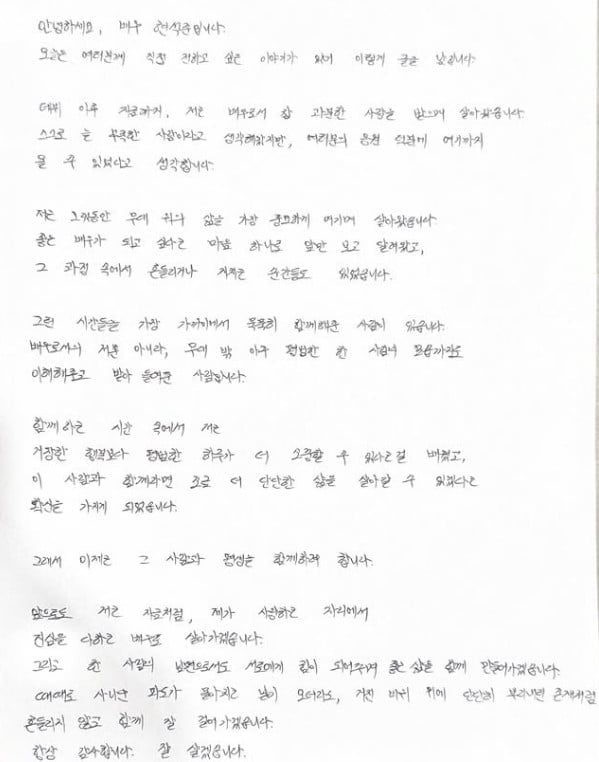 안녕하세요, 배우 현석준입니다.
오늘은 여러분께 직접 전하고 싶은 이야기가 있어 이렇게 글을 남깁니다.
데뷔 이후 지금까지, 저는 배우로서 참 과분한 사랑을 받으며 살아왔습니다.
스스로 늘 부족한 사람이라고 생각해왔지만, 여러분의 응원 덕분에 여기까지
올 수 있었다고 생각합니다.
저는 그동안 무대 위의 삶을 가장 중요하게 여기며 살아왔습니다.
좋은 배우가 되고 싶다는 마음 하나로 앞만 보고 달려왔고,
그 과정 속에서 흔들리거나 지치는 순간들도 있었습니다.
그런 시간들을 가장 가까이에서 묵묵히 함께해준 사람이 있습니다.
배우로서의 저뿐 아니라, 무대 밖 아주 평범한 한 사람의 모습까지도
이해해주고 받아 들여준 사람입니다.
함께 하는 시간 속에서 저는
거창한 행복보다 평범한 하루가 더 소중할 수 있다는걸 배웠고,
이 사람과 함께라면 조금 더 단단한 삶을 살아갈 수 있겠다는
확신을 가지게 되었습니다.
그래서 이제는 그 사람과 평생을 함께하려 합니다.
앞으로도 저는 지금처럼, 제가 사랑하는 자리에서
진심을 다하는 배우로 살아가겠습니다.
그리고 한 사람의 남편으로서도 서로에게 힘이 되어주며 좋은 삶을 함께 만들어가겠습니다.
때때로 사나운 파도가 몰아치는 날이 오더라도, 거친 바위 위에 단단히 뿌리내린 존재처럼
흔들리지 않고 함께 잘 걸어가겠습니다.
항상 감사합니다. 잘 살겠습니다.